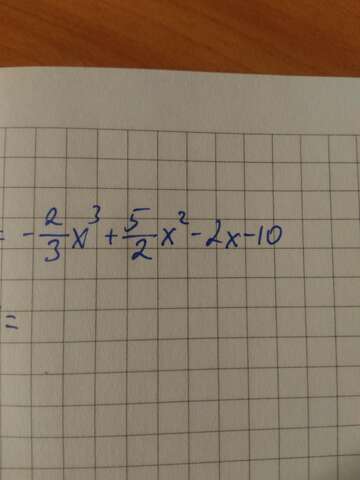 = -2/3 x³ + 5/2 x² - 2x - 10
=